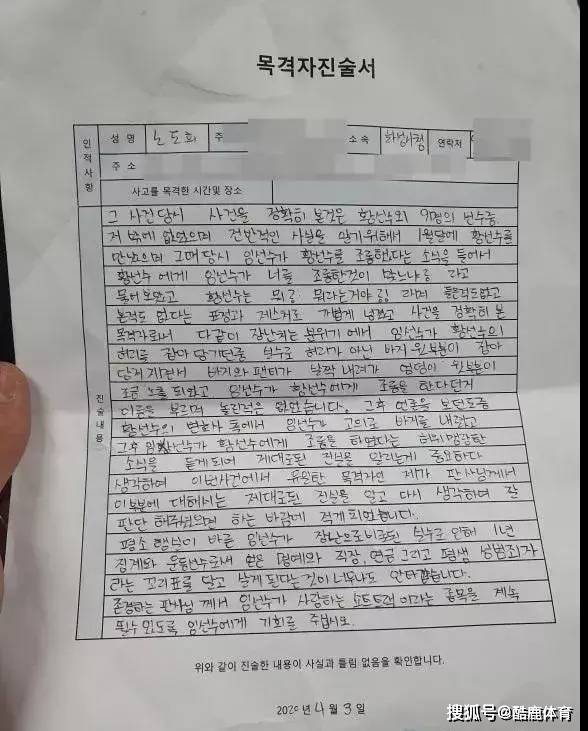 목격자진술서
인적사항
성 명 노도희 주 소속 화성시청 연락처
주 소
사고를 목격한 시간및 장소
진술내용
그 사건당시 사건을 정확히 본것은 황선수외 9명의 선수중
저 밖에 없었으며 전반적인 사실을 알기위해서 1월달에 황선수를
만났으며 그때 당시 임선수가 황선수를 조롱했다는 소식을 들어서
황선수 에게 임선수가 너를 조롱한것이 맞느냐? 라고
물어보았고 황선수는 뭐? 뭐라는거야? 라며 들은적도없고
본적도 없다는 표정과 제스처로 가볍게 넘겼고 사건을 정확히 본
목격자로서 다같이 장난치는 분위기에서 임선수가 황선수의
허리를 잡아 당기던중 실수로 허리가 아닌 바지 윗부분이 잡아
당겨 지면서 바지와 팬티가 살짝 내려가 엉덩이 윗부분이
조금 노출 되었고 임선수가 황선수에게 조롱을 한다던지
이름을 부르며 놀린적은 없었습니다. 그후 언론을 보던도중
황선수의 변호사 측에서 임선수가 고의로 바지를 내렸고
그후 임선수가 황선수에게 조롱을 하였다는 허위
소식을 듣게되어 제대로된 진실을 알리는게 중요하다
생각하여 이번사건에서 유일한 목격자인 제가 판사님께서
이부분에 대해서는 제대로된 진실을 알고 다시 생각하여 잘
판단 해주셨으면 하는 바람에 적게되었습니다.
평소 행실이 바른 임선수가 장난으로 비롯된 실수로 인해 1년
징계와 운동선수로서 얻은 명예와 직장, 연금 그리고 평생 성범죄자
라는 꼬리표를 달고 살게 된다는것이 너무나도 안타깝습니다.
존경하는 판사님 께서 임선수가 사랑하는 쇼트트랙 이라는 종목을 계속
할수있도록 임선수에게 기회를 주십시오.
위와 같이 진술한 내용이 사실과 틀림 없음을 확인합니다.
2020 년 4 월 3 일
搜狐号@酷鹿体育